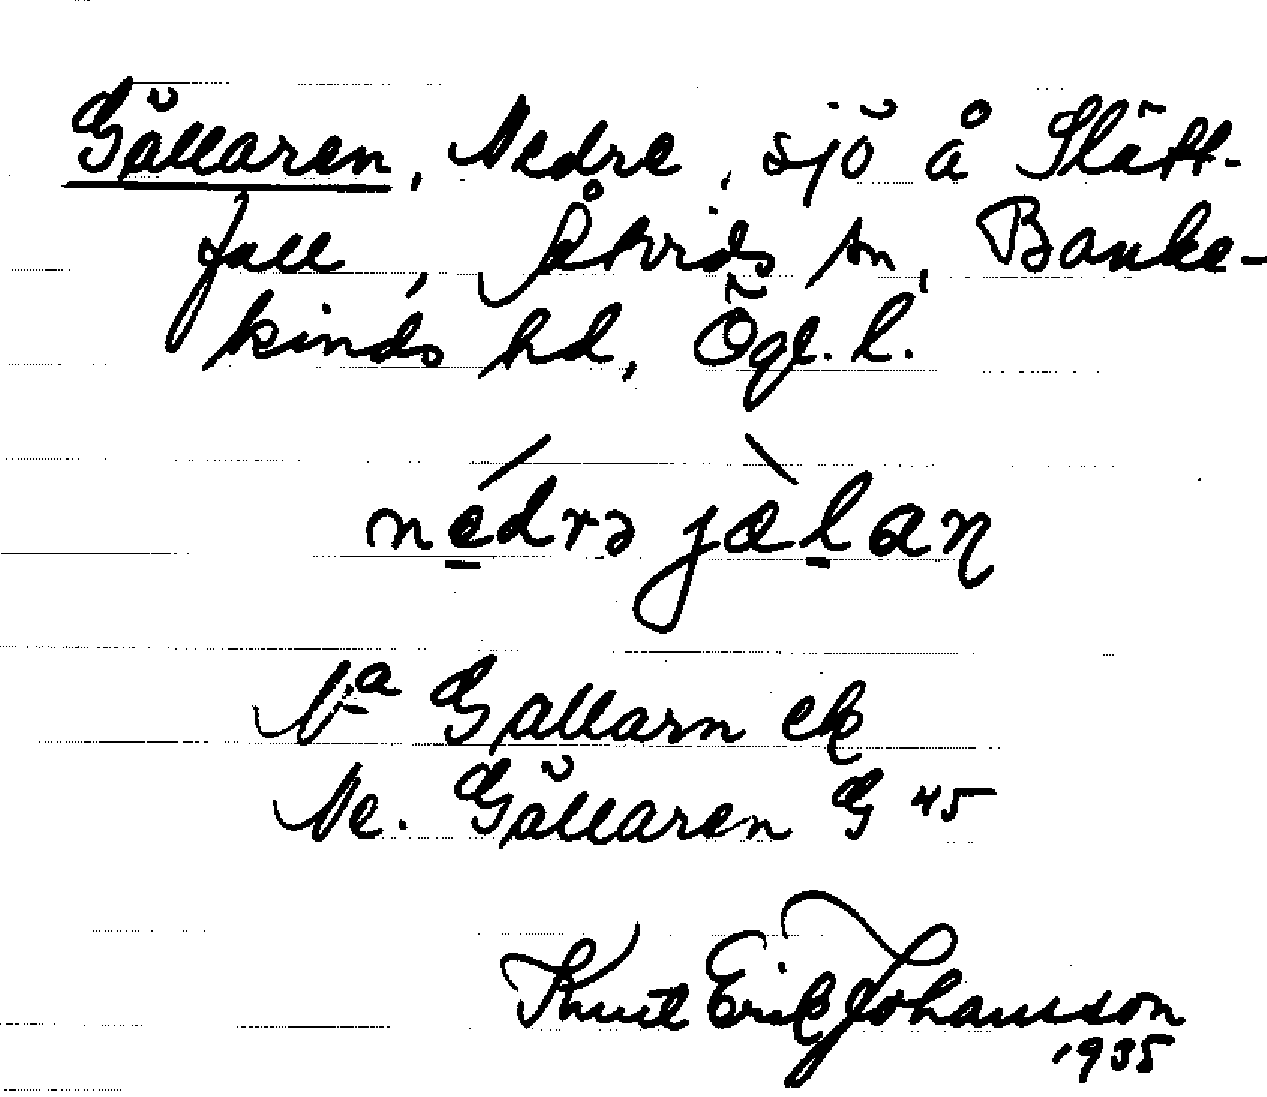 Gällaren, Nedre, sjö å Slätt-
fall, Åtvids sn, Banke-
kinds hd, Ögl. l.
nédrə jæ̀laɳ
N:a Gallarn ek
Ne. Gällaren G 45
Knut Erik Johansson
1935